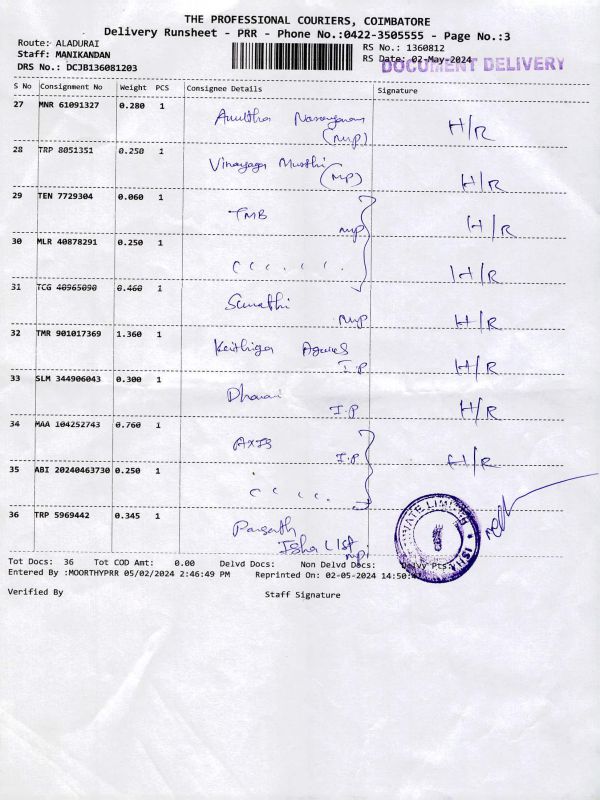 THE PROFESSIONAL COURIERS, COIMBATORE
Delivery Runsheet - PRR - Phone No.:0422-3505555 - Page No.:3
Route: ALADURAI
RS No.: 1360812
Staff: MANIKANDAN
RS Date: 02-May-2024
DOCUMENT DELIVERY
DRS No.: DCJB136081203
S No Consignment No Weight PCS Consignee Details Signature
27 MNR 61091327 0.280 1
H/R
(MP)
28 TRP 8051351 0.250 1
Vinayaga Murthi
(MP) H/R
29 TEN 7729304 0.060 1
TMB
MP H/R
30 MLR 40878291 0.250 1
H/R
31 TCG 40965090 0.460 1
Sumathi
MP H/R
32 TMR 901017369 1.360 1
I.P H/R
33 SLM 344906043 0.300 1
I.P H/R
34 MAA 104252743 0.760 1
AXIS
I.P H/R
35 ABI 20240463730 0.250 1
36 TRP 5969442 0.345 1
Isha
PRIVATE LIMITED * ISHA
Tot Docs: 36 Tot COD Amt: 0.00 Delvd Docs: Non Delvd Docs: Delvy Pts:
Entered By :MOORTHYPRR 05/02/2024 2:46:49 PM Reprinted On: 02-05-2024 14:50:
Verified By Staff Signature